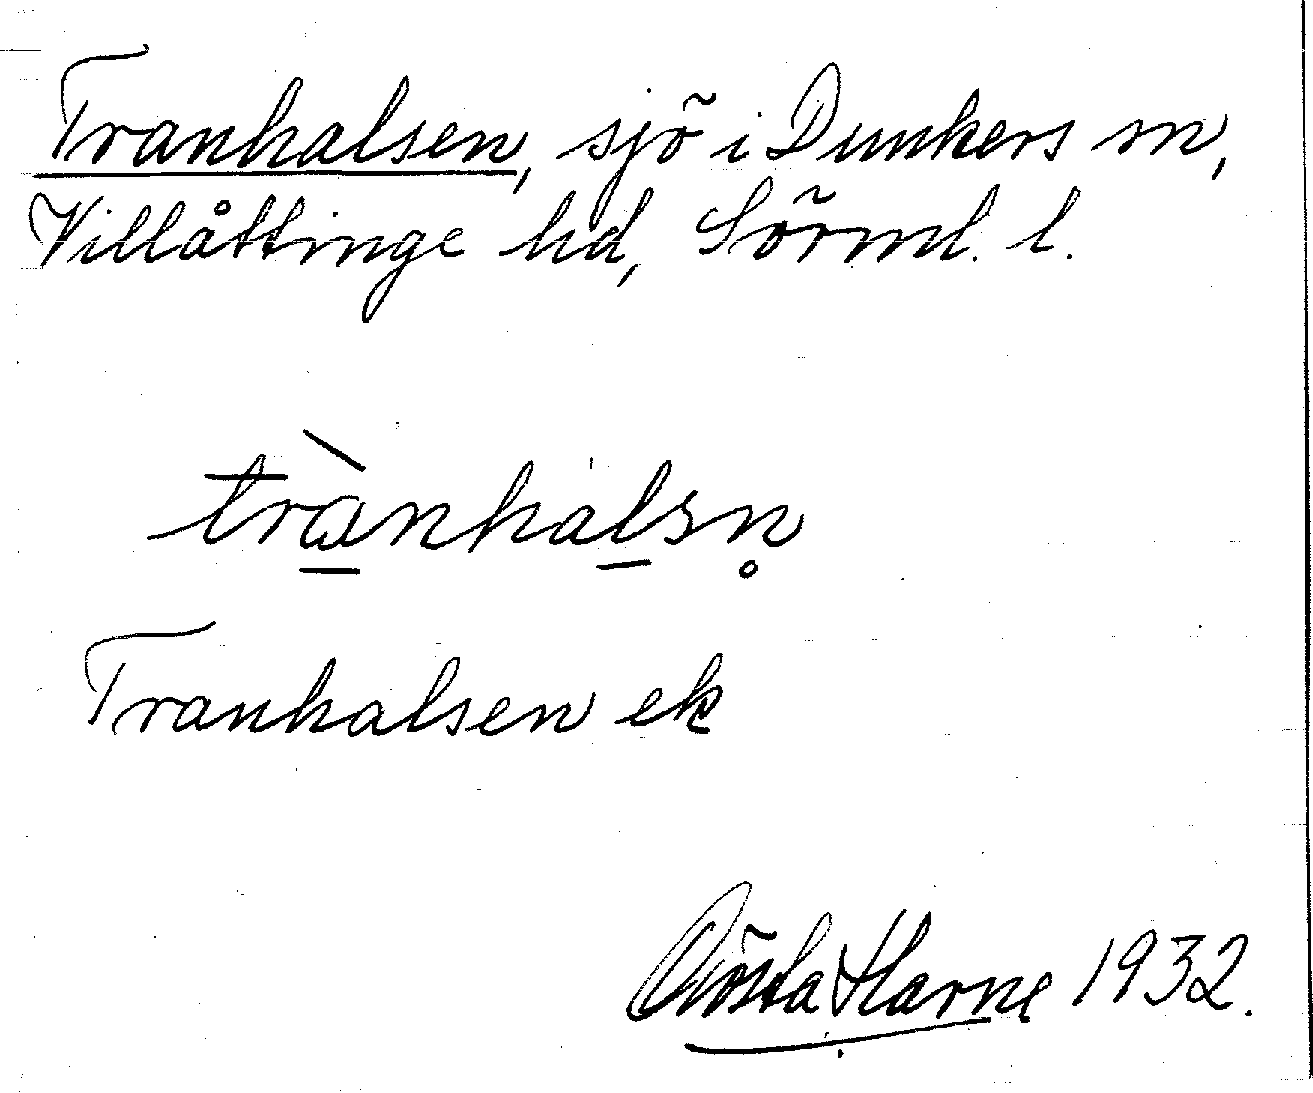 Tranhalsen, sjö i Dunkers sn,
Villåttinge hd, Sörml. l.
trànhalsn̥
Tranhalsen ek
Gösta Harne 1932.